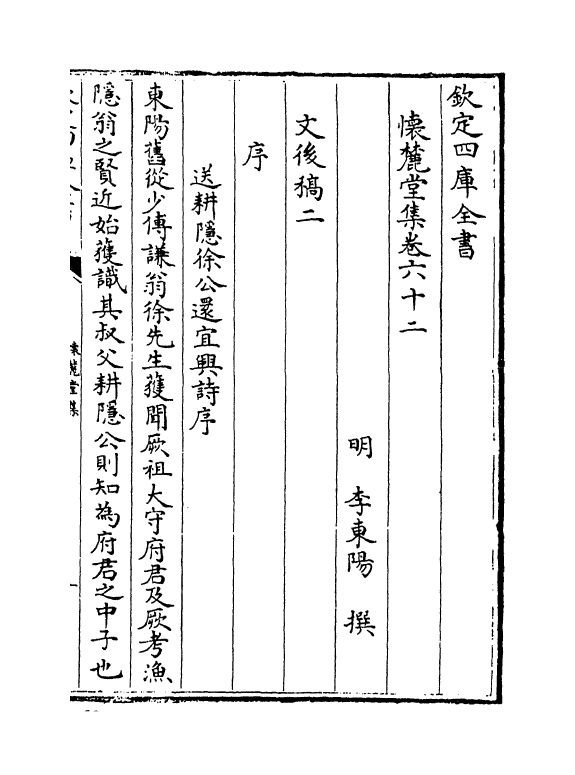 欽定四庫全書
懷麓堂集卷六十二
明 李東陽 撰
文後稿二
序
送耕隱徐公還宜興詩序
東陽舊從少傅謙翁徐先生獲聞厥祖大守府君及厥考漁
隱翁之賢近始獲識其叔父耕隱公則知為府君之中子也
懷麓堂集
一